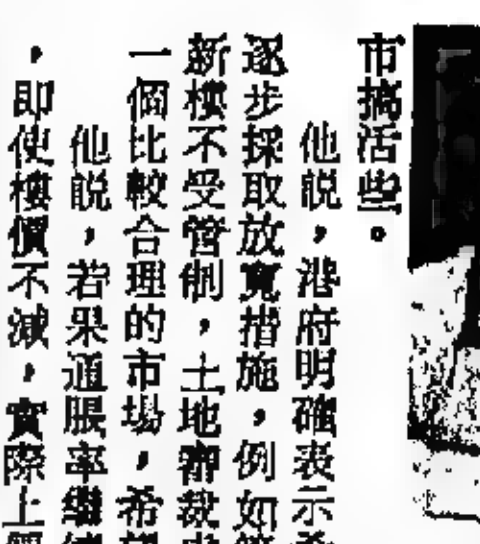 市搞活些。
他説，港府明確表示希
逐步採取放寬措施，例如
新樓不受管制，土地審裁
一個比較合理的市場，希望
他説，若果通脹率繼續
，即使樓價不減，實際上